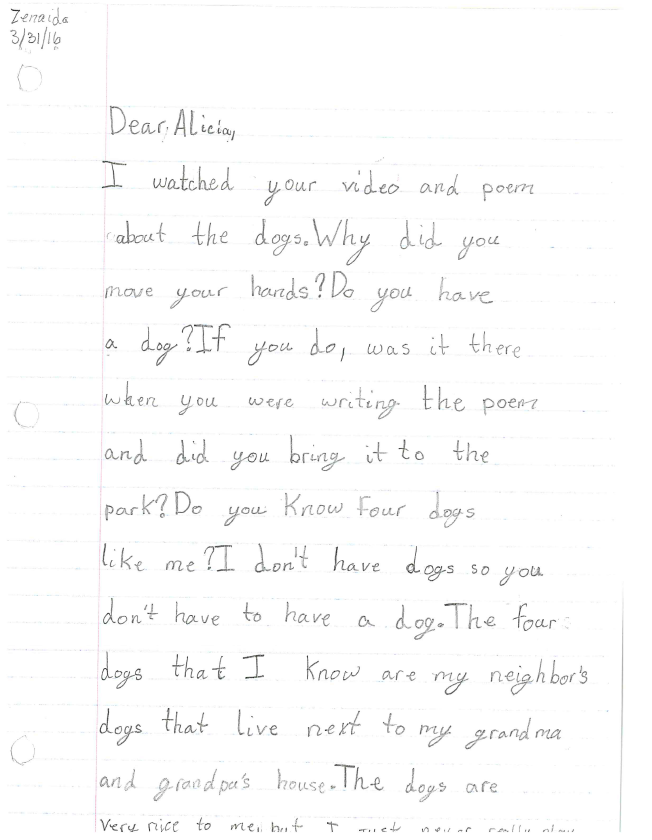 Zenaida
3/31/16
Dear, Alicia,
I watched your video and poem
about the dogs. Why did you
move your hands? Do you have
a dog? If you do, was it there
when you were writing the poem
and did you bring it to the
park? Do you know four dogs
like me? I don't have dogs so you
don't have to have a dog. The four
dogs that I know are my neighbor's
dogs that live next to my grandma
and grandpa's house. The dogs are
very nice to me, but I just never really play